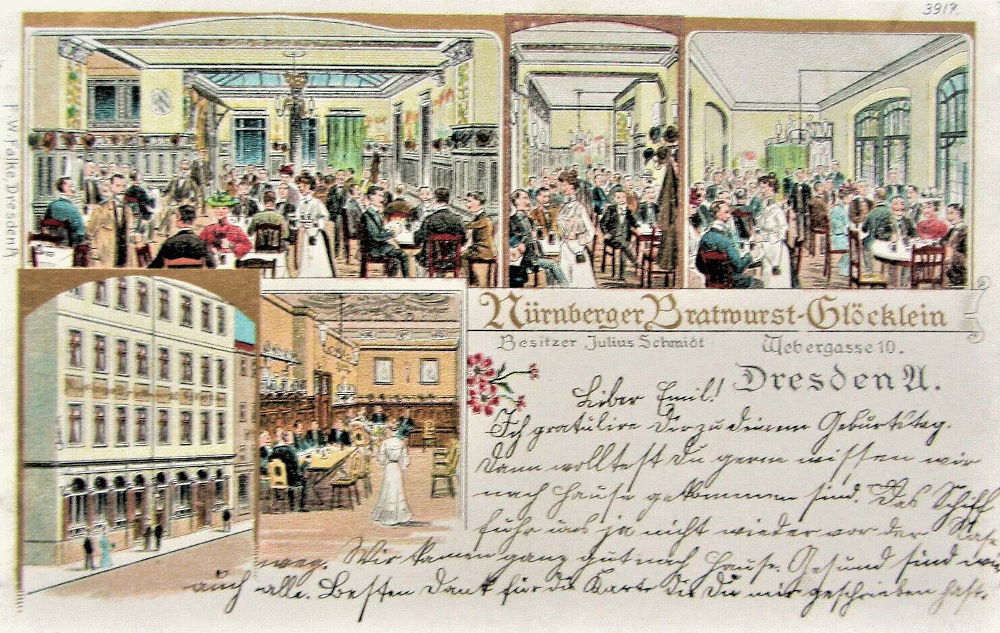 3917.
F. W. Falke, Dresden A.
Nürnberger Bratwurst-Glöcklein
Besitzer Julius Schmidt Webergasse 10.
Dresden A.
Liber Emil!
Ich gratulire Dir zu deinem Geburtstag.
Dann wolltest Du gern wissen wie wir
nach Hause gekommen sind. Das Schiff
fuhr uns ja nicht wieder vor der Nase
weg. Wir kamen ganz gut nach Hause. Gesund sind wir
auch alle. Besten Dank für die Karte die Du mir geschrieben hast.